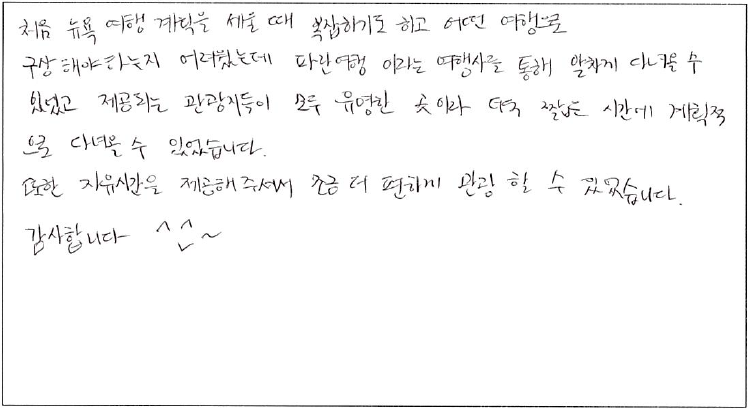 처음 뉴욕 여행 계획을 세울 때 복잡하기도 하고 어떤 여행으로
구상해야하는지 어려웠는데 파란여행 이라는 여행사를 통해 알차게 다녀올 수
있었고 제공되는 관광지들이 모두 유명한 곳이라 더욱 짧은 시간에 계획적
으로 다녀올 수 있었습니다.
또한 자유시간을 제공해주셔서 조금 더 편하게 관광 할 수 있었습니다.
감사합니다 ^^~